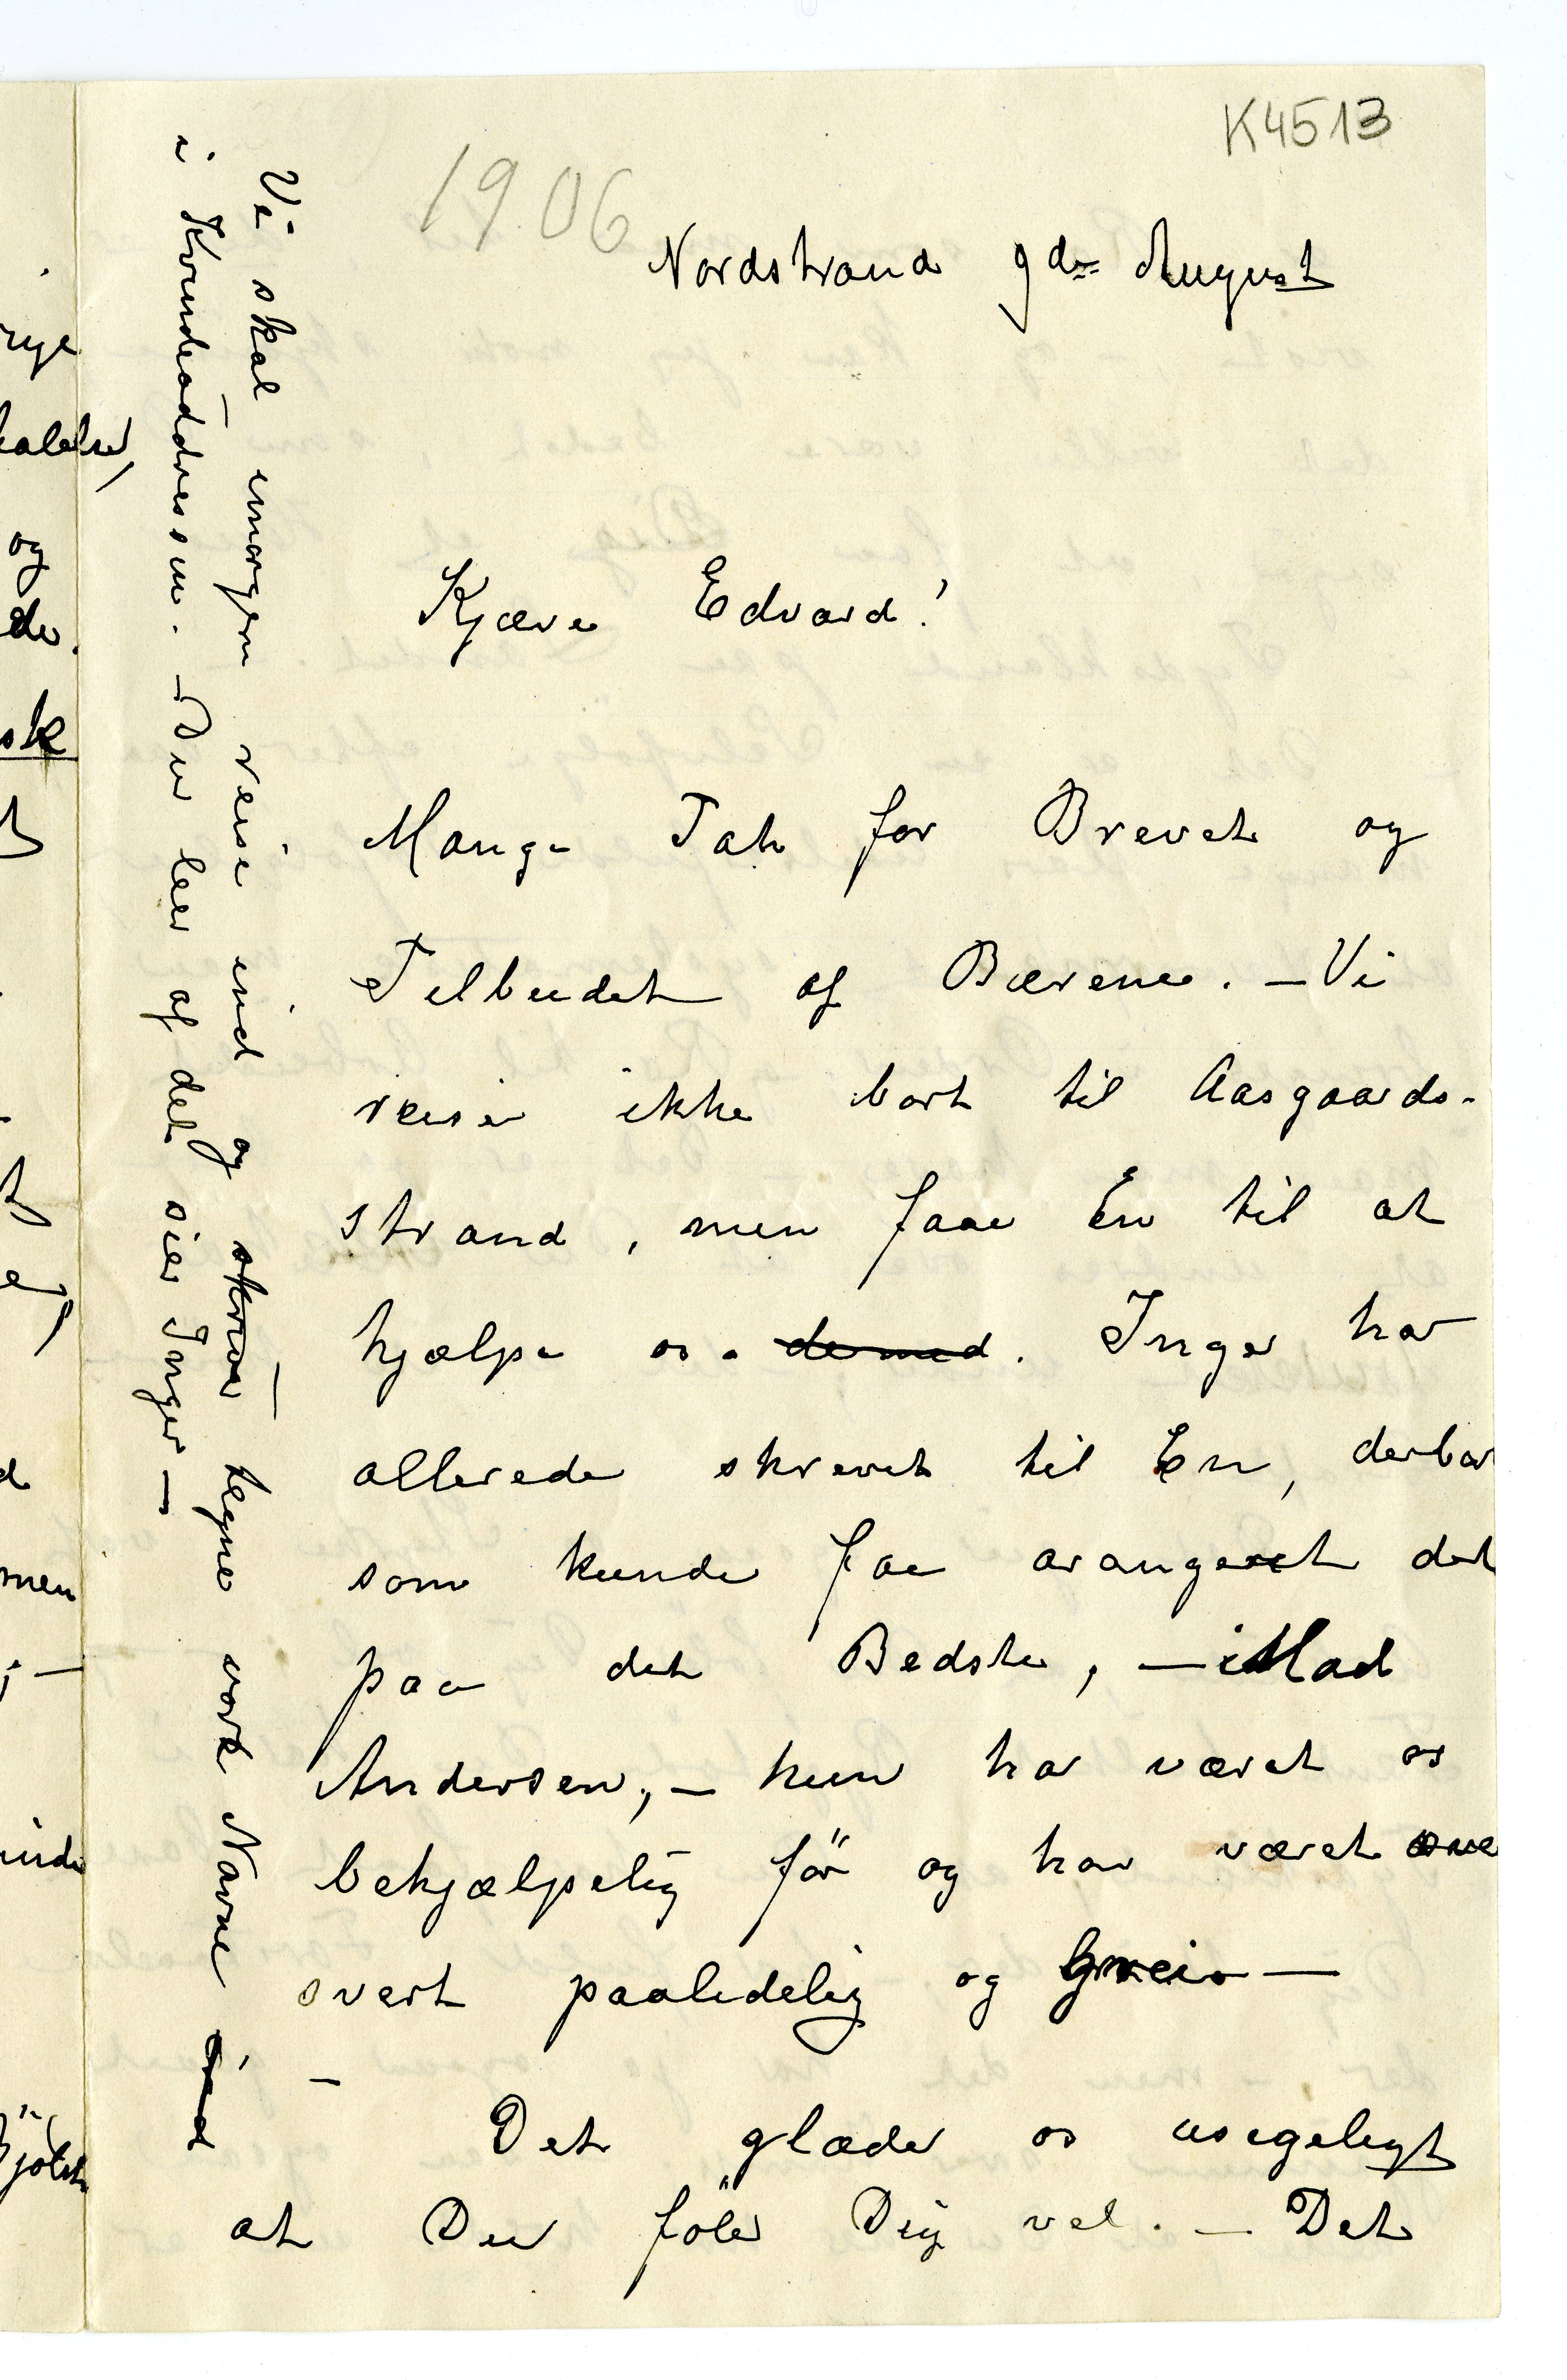 K4513
1906
Nordstrand 9de August
Kjære Edvard!
Mange Tak for Brevet og
Tilbudet af Bærene. – Vi
reiser ikke bort til Aasgaards-
strand, men faae En til at
hjælpe os. dermed. Inger har
allerede skrevet til En, derbor
som kunde faae arangeret det
paa det Bedste, – Mad
Andersen, – hun har været os
behjælpelig för og har været
svert paalidelig og Grei –
– Det glæder os usigeligt
at Du föler Dig vel. – Det
Vi skal imorgen reise ind og skrive tegne vore Navne
i Kvindeaddressen. – Du ler af det sier Inger –
rye
kalelse,
og
de.
sk
t
d
men
; –